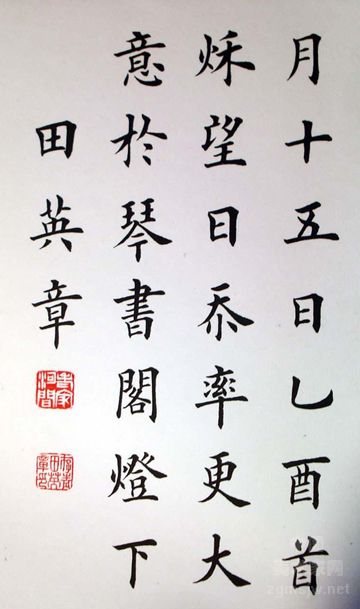 月十五日乙酉首
秌望日忝率更大
意於琴書閣燈下
田英章